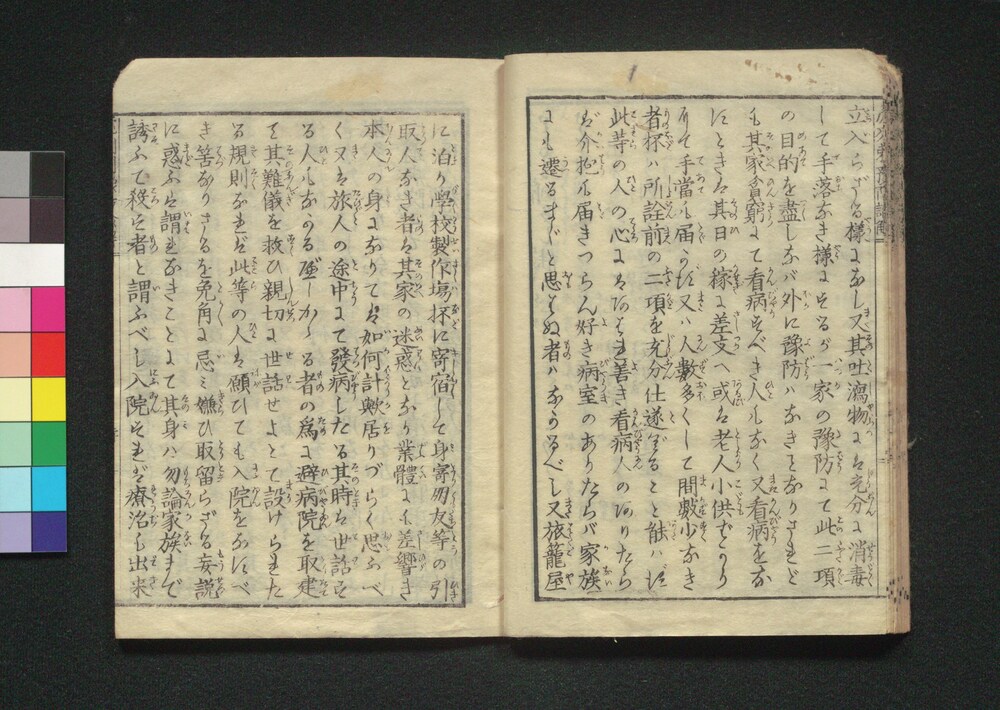 立入らざる樣になし又其吐瀉物には充分に消毒
して手落なき樣にするが一家の豫防にて此二項
の目的を盡しなバ外に豫防ハなきことなりされど
も其家貧窮にて看病すべき人もなく又看病をな
にときは其日の稼に差支へ或は老人小供ばかり
にて手當も届かず又ハ人數多くして間數少なき
者抔ハ所詮前の二項を充分仕遂ぐること能ハず
此等の人の心にはあはれ善き看病人のありたら
ば介抱も届きつらん好き病室のありたらバ家族
にも遷るまじと思はぬ者ハなかるべし又旅籠屋
に泊り學校製作場抔に寄宿して身寄朋友等の引
取人なき者は其家の迷惑となり業體にも差響き
本人の身になりては如何計歟居りづらく思ふべ
く又は旅人の途中にて發病したる其時は世話す
る人もなかるべしかゝる者の爲に避病院を取建
て其難儀を救ひ親切に世話せよとて設けられた
る規則なれば此等の人は願ひても入院をなすべ
き筈なりさるを兔角に忌ミ嫌ひ取留らざる妄説
に惑ふは謂れなきことにて其身ハ勿論家族まで
誘ふて殺す者と謂ふべし入院すれば療治も出来